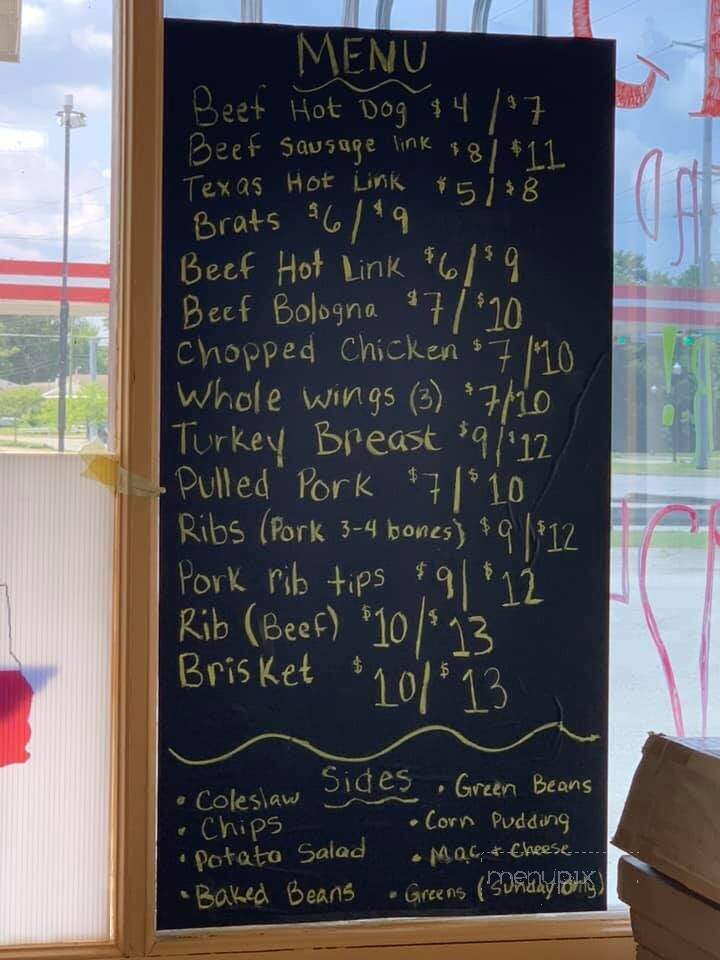 MENU
Beef Hot Dog $4/$7
Beef Sausage link $8/$11
Texas Hot Link $5/$8
Brats $6/$9
Beef Hot Link $6/$9
Beef Bologna $7/$10
Chopped Chicken $7/$10
Whole wings (3) $7/$10
Turkey Breast $9/$12
Pulled Pork $7/$10
Ribs (Pork 3-4 bones) $9/$12
Pork rib tips $9/$12
Rib (Beef) $10/$13
Brisket $10/$13
Sides
• Coleslaw
• Chips
• Potato Salad
• Baked Beans
• Green Beans
• Corn Pudding
• Mac + Cheese
• Greens (Sunday Only)
menupix